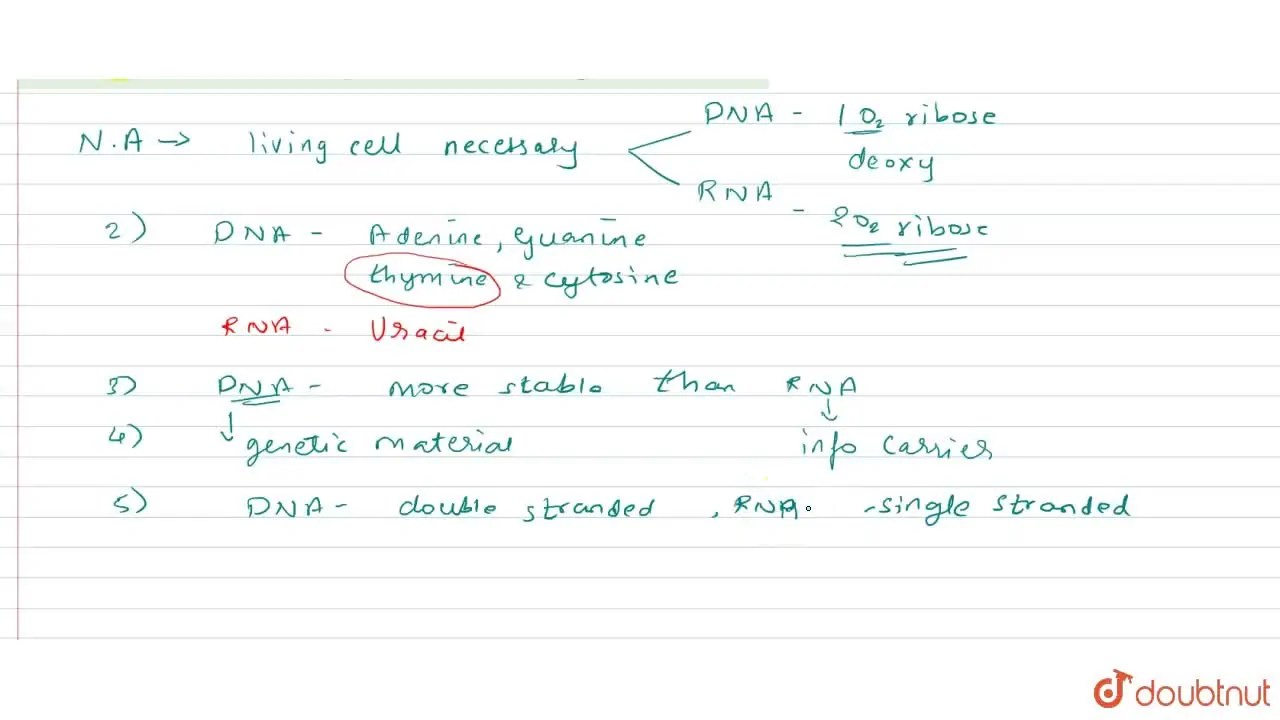 DNA - 1 O2 ribose
N.A → living cell necessary
deoxy
RNA - 2O2 ribose
2) DNA - Adenine, Guanine
thymine & cytosine
RNA - Uracil
3) DNA - more stable than RNA
4) genetic material info carrier
5) DNA - double stranded, RNA - single stranded
doubtnut